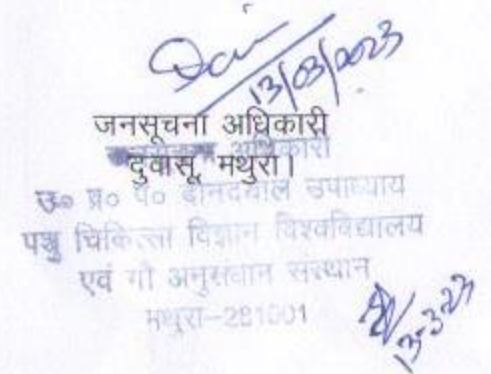 13/03/2023
जनसूचना अधिकारी
जनसूचना अधिकारी
दुवासू, मथुरा।
उ० प्र० पं० दीनदयाल उपाध्याय
पशु चिकित्सा विज्ञान विश्वविद्यालय
एवं गो अनुसंधान संस्थान
मथुरा-281001
13-3-23